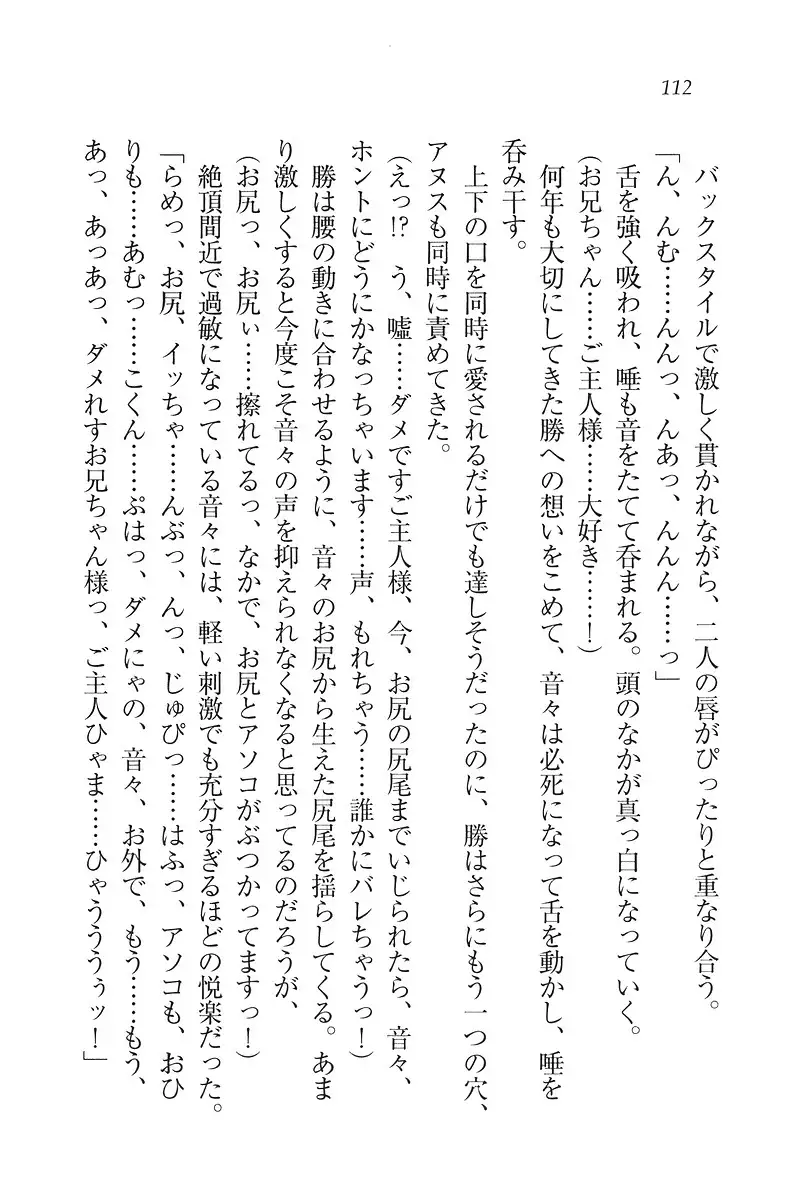 112
バックスタイルで激しく貫かれながら、二人の唇がぴったりと重なり合う。
「ん、んむ……んんっ、んあっ、んんん……っ」
舌を強く吸われ、唾も音をたてて呑まれる。頭のなかが真っ白になっていく。
(お兄ちゃん……ご主人様……大好き……！)
何年も大切にしてきた勝への想いをこめて、音々は必死になって舌を動かし、唾を
呑み干す。
上下の口を同時に愛されるだけでも達しそうだったのに、勝はさらにもう一つの穴、
アヌスも同時に責めてきた。
(えっ!?　う、嘘……ダメですご主人様、今、お尻の尻尾までいじられたら、音々、
ホントにどうにかなっちゃいます……声、もれちゃう……誰かにバレちゃうっ！)
勝は腰の動きに合わせるように、音々のお尻から生えた尻尾を揺らしてくる。あま
り激しくすると今度こそ音々の声を抑えられなくなると思ってるのだろうが、
(お尻っ、お尻ぃ……擦れてるっ、なかで、お尻とアソコがぶつかってますっ！)
絶頂間近で過敏になっている音々には、軽い刺激でも充分すぎるほどの悦楽だった。
「らめっ、お尻、イッちゃ……んぶっ、んっ、じゅぴっ……はふっ、アソコも、おひ
りも……あむっ……こくん……ぷはっ、ダメにゃの、音々、お外で、もう……もう、
あっ、あっあっ、ダメれすお兄ちゃん様っ、ご主人ひゃま……ひゃうううぅッ！」